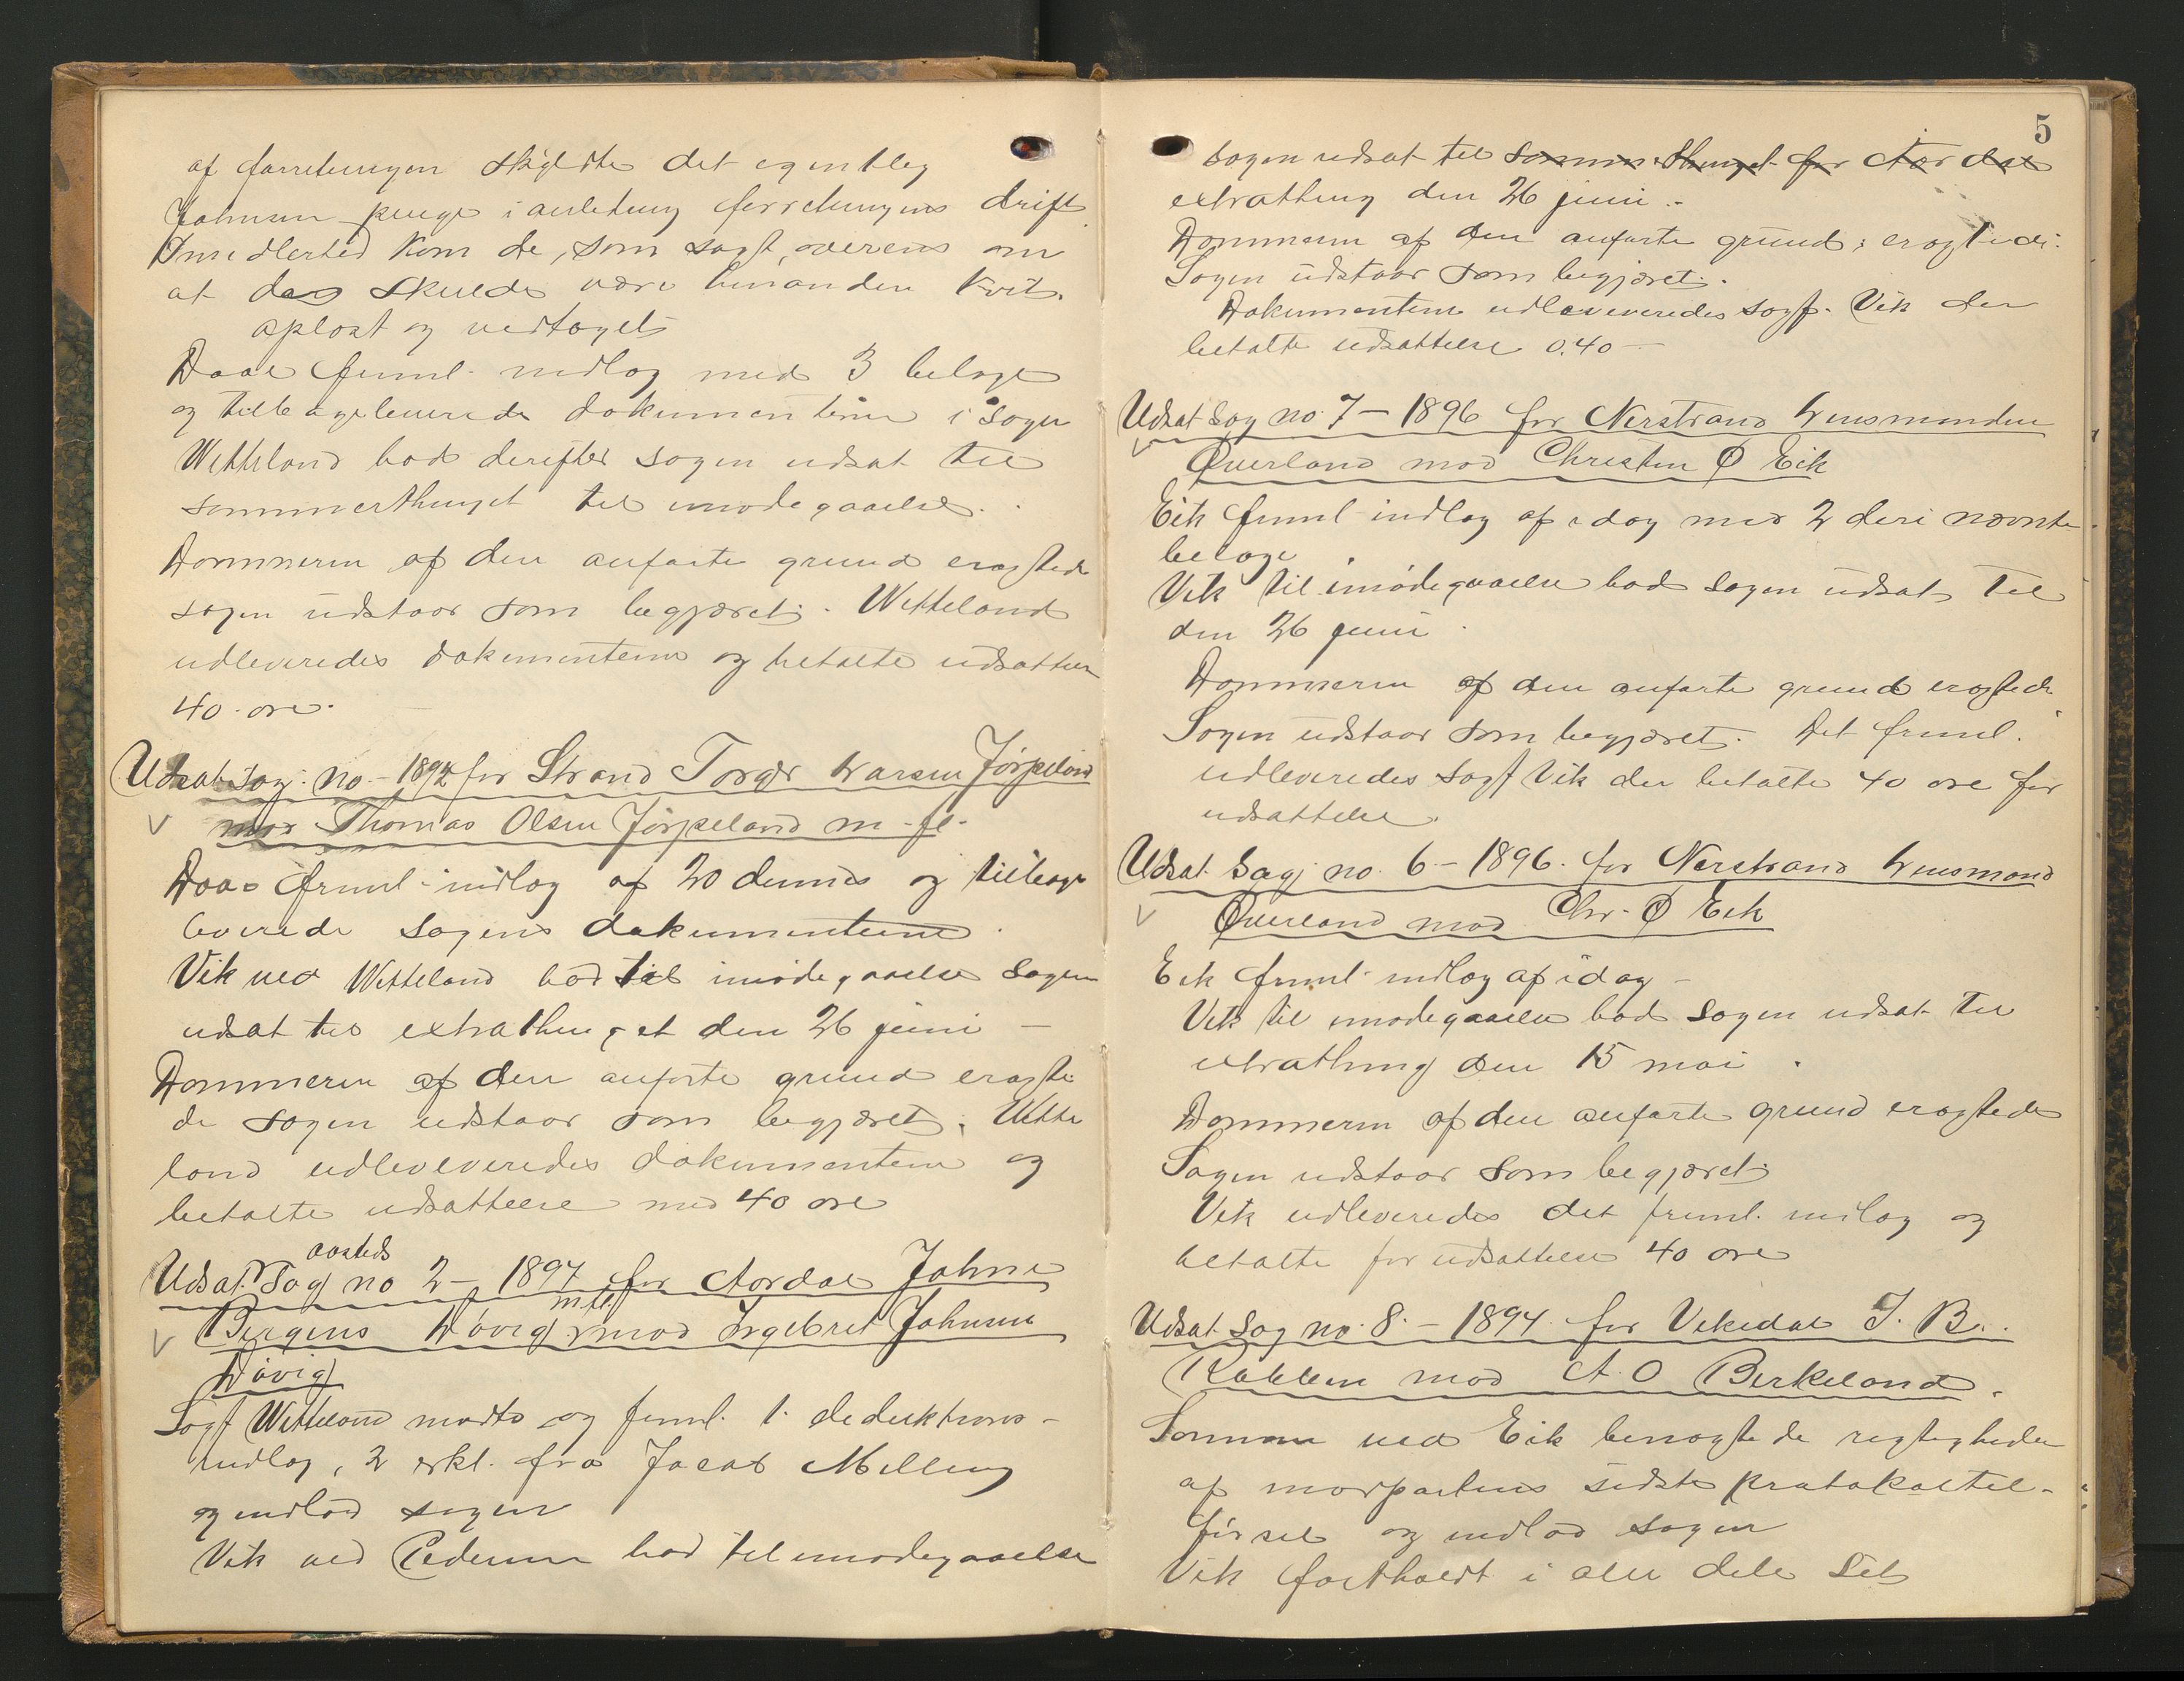 af forretningen skyldte det egentlig
Johnsen penge i anledning forretningens drift.
Imidlertid kom de, som sagt, overens om
at de skulde være hinanden kvit.
oplæst og vedtaget
Daae freml. indlæg med 3 bilage
og tilbageleverede dokumenterne i sagen
Wetteland bad derefter sagen udsat til
sommerthinget til imødegaaelse.
Dommeren af den anførte grund eragtede
sagen udstaar som begjæret. Wetteland
udleveredes dokumenterne og betalte udsættelse
40 øre.
Udsat sag no - 1894 for Strand Torger Larsen Jørpeland
mod Thomas Olsen Jørpeland m. fl.
Daae freml. indlæg af 20 dennes og tilbage
leverede sagens dokumenterne.
Vik ved Wetteland bad til imødegaaelse sagen
udsat til extrathinget den 26 juni -
Dommeren af den anførte grund eragte
de sagen udstaar som begjæret. Wette
land udleveveredes dokumenterne og
betalte udsættelse med 40 øre
aasteds
Udsat Sag no 2 - 1897 for Aardal Johne
m. fl.
Birgers Døvig mod Ingebret Johnsen
Døvig
Sagf Wetteland mødte og freml. 1. deduktions-
indlæg, 2 erkl. fra Jacob Melling
og indlod sagen
Vik ved Pedersen bad til imødegaaelse
5
sagen udsat til sommerthinget for Aardal
extrathing den 26 juni.-
Dommeren af den anførte grund; eragtede:
Sagen udstaar som begjæret.
Dokumenterne udleveveredes sagf. Vik der
betalte udsættelse 0.40 -
Udsat sag no. 7 - 1896 for Nerstrand Lensmanden
Øverland mod Christen Ø Eik
Eik freml indlæg af idag med 2 deri nævnte
bilage.
Vik til imødegaaelse bad sagen udsat til
den 26 juni.
Dommeren af den anførte grund eragtede
Sagen udstaar som begjæret. Det freml.
udleveredes sagf Vik der betalte 40 øre for
udsættelse.
Udsat Sag no. 6 - 1896. for Nerstrand Lensmand
Øverland mod Chr. Ø Eik
Eik freml. indlæg af idag -
Vik til imødegaaelse bad sagen udsat til
extrathing den 15 mai.
Dommeren af den anførte grund eragtede
Sagen udstaar som begjæret
Vik udleveredes det freml. indlæg og
betalte for udsættelse 40 øre
Udsat Sag no. 8. - 1894 for Vikedal J. B.
mod A. O Birkeland.
Sømme ved Eik benægtede rigtigheden
af modpartens sidste protokoltil-
førsel og indlod sagen
Vik fastholdt i alle dele sit